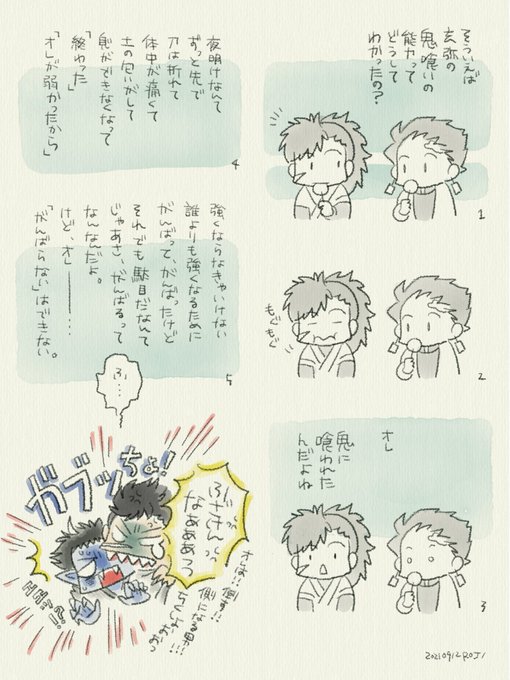 そういえば
玄弥の
鬼喰いの
能力って
どうして
わかったの？
1
もぐ
もぐ
2
オレ
鬼に
喰われた
んだよね
3
夜明けなんて
ずっと先で
刀は折れて
体中が痛くて
土の匂いがして
息ができなくなって
「終わった」
「オレが弱かったから」
4
強くならなきゃいけない
誰よりも強くなるために
がんばって、がんばったけど
それでも駄目だなんて
じゃあさ、がんばるって
なんなんだよ。
けど、オレ――……
「がんばらない」はできない。
5
ふ
……
ガブッ
ちょ!
ふざけんっ
なぁぁぁっ
オレは!!倒す!!
側になる男!!!
20210912ROJI